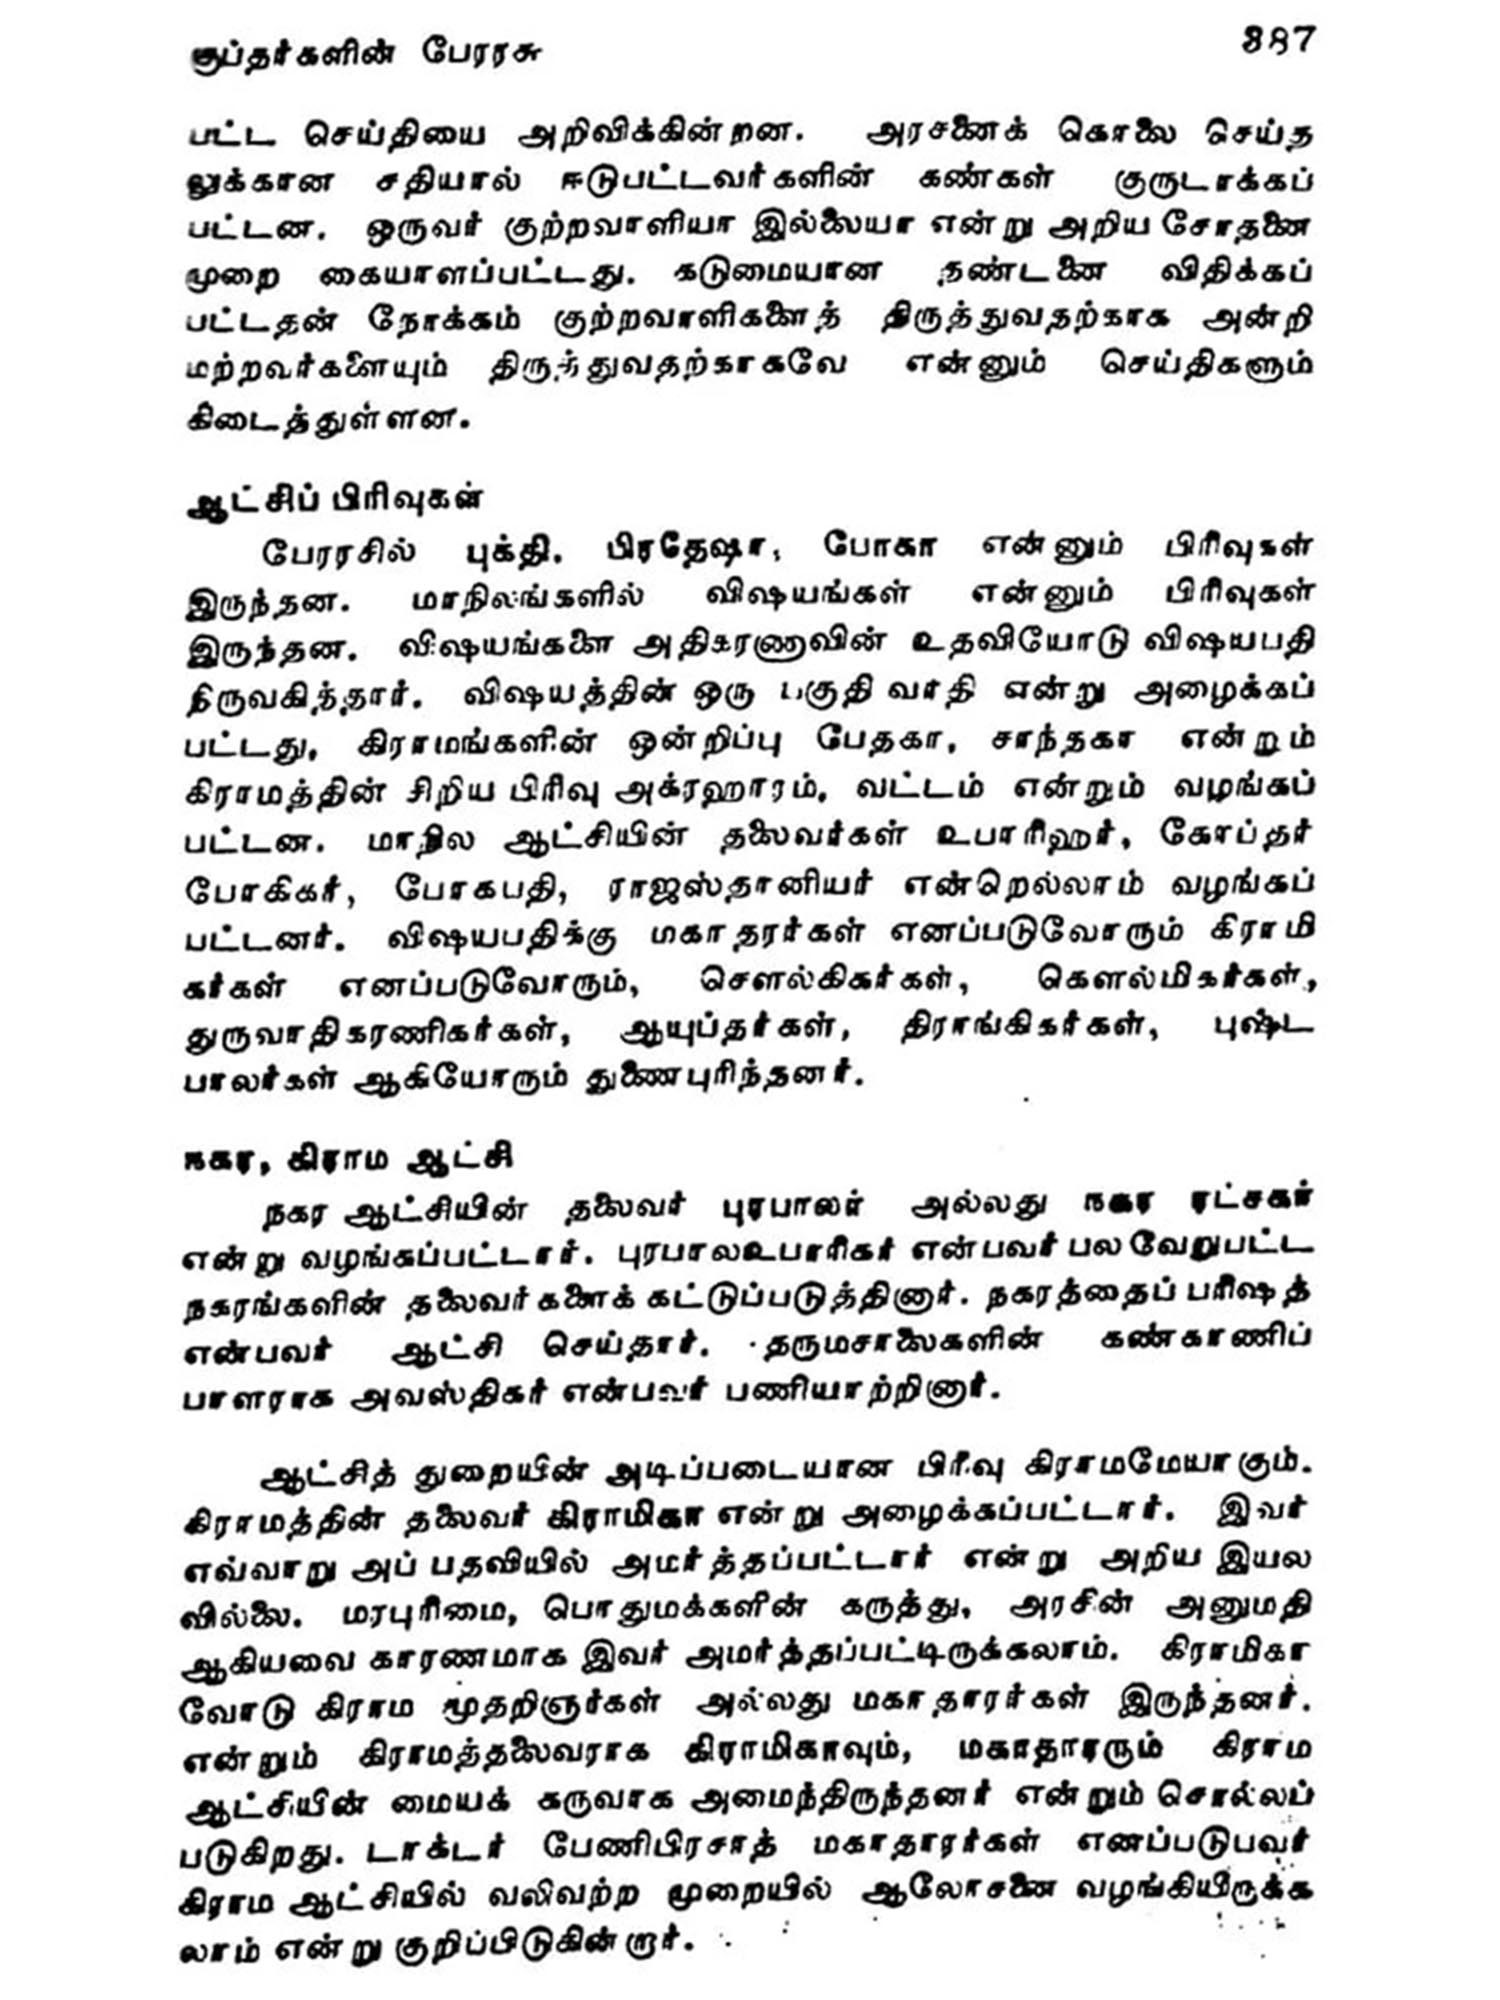 குப்தர்களின் பேரரசு 387
பட்ட செய்தியை அறிவிக்கின்றன. அரசனைக் கொலை செய்த
லுக்கான சதியால் ஈடுபட்டவர்களின் கண்கள் குருடாக்கப்
பட்டன. ஒருவர் குற்றவாளியா இல்லையா என்று அறிய சோதனை
முறை கையாளப்பட்டது. கடுமையான தண்டனை விதிக்கப்
பட்டதன் நோக்கம் குற்றவாளிகளைத் திருத்துவதற்காக அன்றி
மற்றவர்களையும் திருத்துவதற்காகவே என்னும் செய்திகளும்
கிடைத்துள்ளன.
ஆட்சிப் பிரிவுகள்
பேரரசில் புக்தி. பிரதேஷா, போகா என்னும் பிரிவுகள்
இருந்தன. மாநிலங்களில் விஷயங்கள் என்னும் பிரிவுகள்
இருந்தன. விஷயங்களை அதிகரணாவின் உதவியோடு விஷயபதி
நிருவகித்தார். விஷயத்தின் ஒரு பகுதி வாதி என்று அழைக்கப்
பட்டது, கிராமங்களின் ஒன்றிப்பு பேதகா, சாந்தகா என்றும்
கிராமத்தின் சிறிய பிரிவு அக்ரஹாரம், வட்டம் என்றும் வழங்கப்
பட்டன. மாநில ஆட்சியின் தலைவர்கள் உபாரிஹர், கோப்தர்
போகிகர், போகபதி, ராஜஸ்தானியர் என்றெல்லாம் வழங்கப்
பட்டனர். விஷயபதிக்கு மகாதரர்கள் எனப்படுவோரும் கிராமி
கர்கள் எனப்படுவோரும், சௌல்கிகர்கள், கௌல்மிகர்கள்,
துருவாதிகரணிகர்கள், ஆயுப்தர்கள், திராங்கிகர்கள், புஷ்ட
பாலர்கள் ஆகியோரும் துணைபுரிந்தனர்.
நகர, கிராம ஆட்சி
நகர ஆட்சியின் தலைவர் புரபாலர் அல்லது நகர ரட்சகர்
என்று வழங்கப்பட்டார். புரபாலஉபாரிகர் என்பவர் பல வேறுபட்ட
நகரங்களின் தலைவர்களைக் கட்டுப்படுத்தினார். நகரத்தைப் பரிஷத்
என்பவர் ஆட்சி செய்தார். தருமசாலைகளின் கண்காணிப்
பாளராக அவஸ்திகர் என்பவர் பணியாற்றினார்.
ஆட்சித் துறையின் அடிப்படையான பிரிவு கிராமமேயாகும்.
கிராமத்தின் தலைவர் கிராமிகா என்று அழைக்கப்பட்டார். இவர்
எவ்வாறு அப் பதவியில் அமர்த்தப்பட்டார் என்று அறிய இயல
வில்லை. மரபுரிமை, பொதுமக்களின் கருத்து, அரசின் அனுமதி
ஆகியவை காரணமாக இவர் அமர்த்தப்பட்டிருக்கலாம். கிராமிகா
வோடு கிராம மூதறிஞர்கள் அல்லது மகாதாரர்கள் இருந்தனர்.
என்றும் கிராமத்தலைவராக கிராமிகாவும், மகாதாரரும் கிராம
ஆட்சியின் மையக் கருவாக அமைந்திருந்தனர் என்றும் சொல்லப்
படுகிறது. டாக்டர் பேணிபிரசாத் மகாதாரர்கள் எனப்படுபவர்
கிராம ஆட்சியில் வலிவற்ற முறையில் ஆலோசனை வழங்கியிருக்க
லாம் என்று குறிப்பிடுகின்றார்.